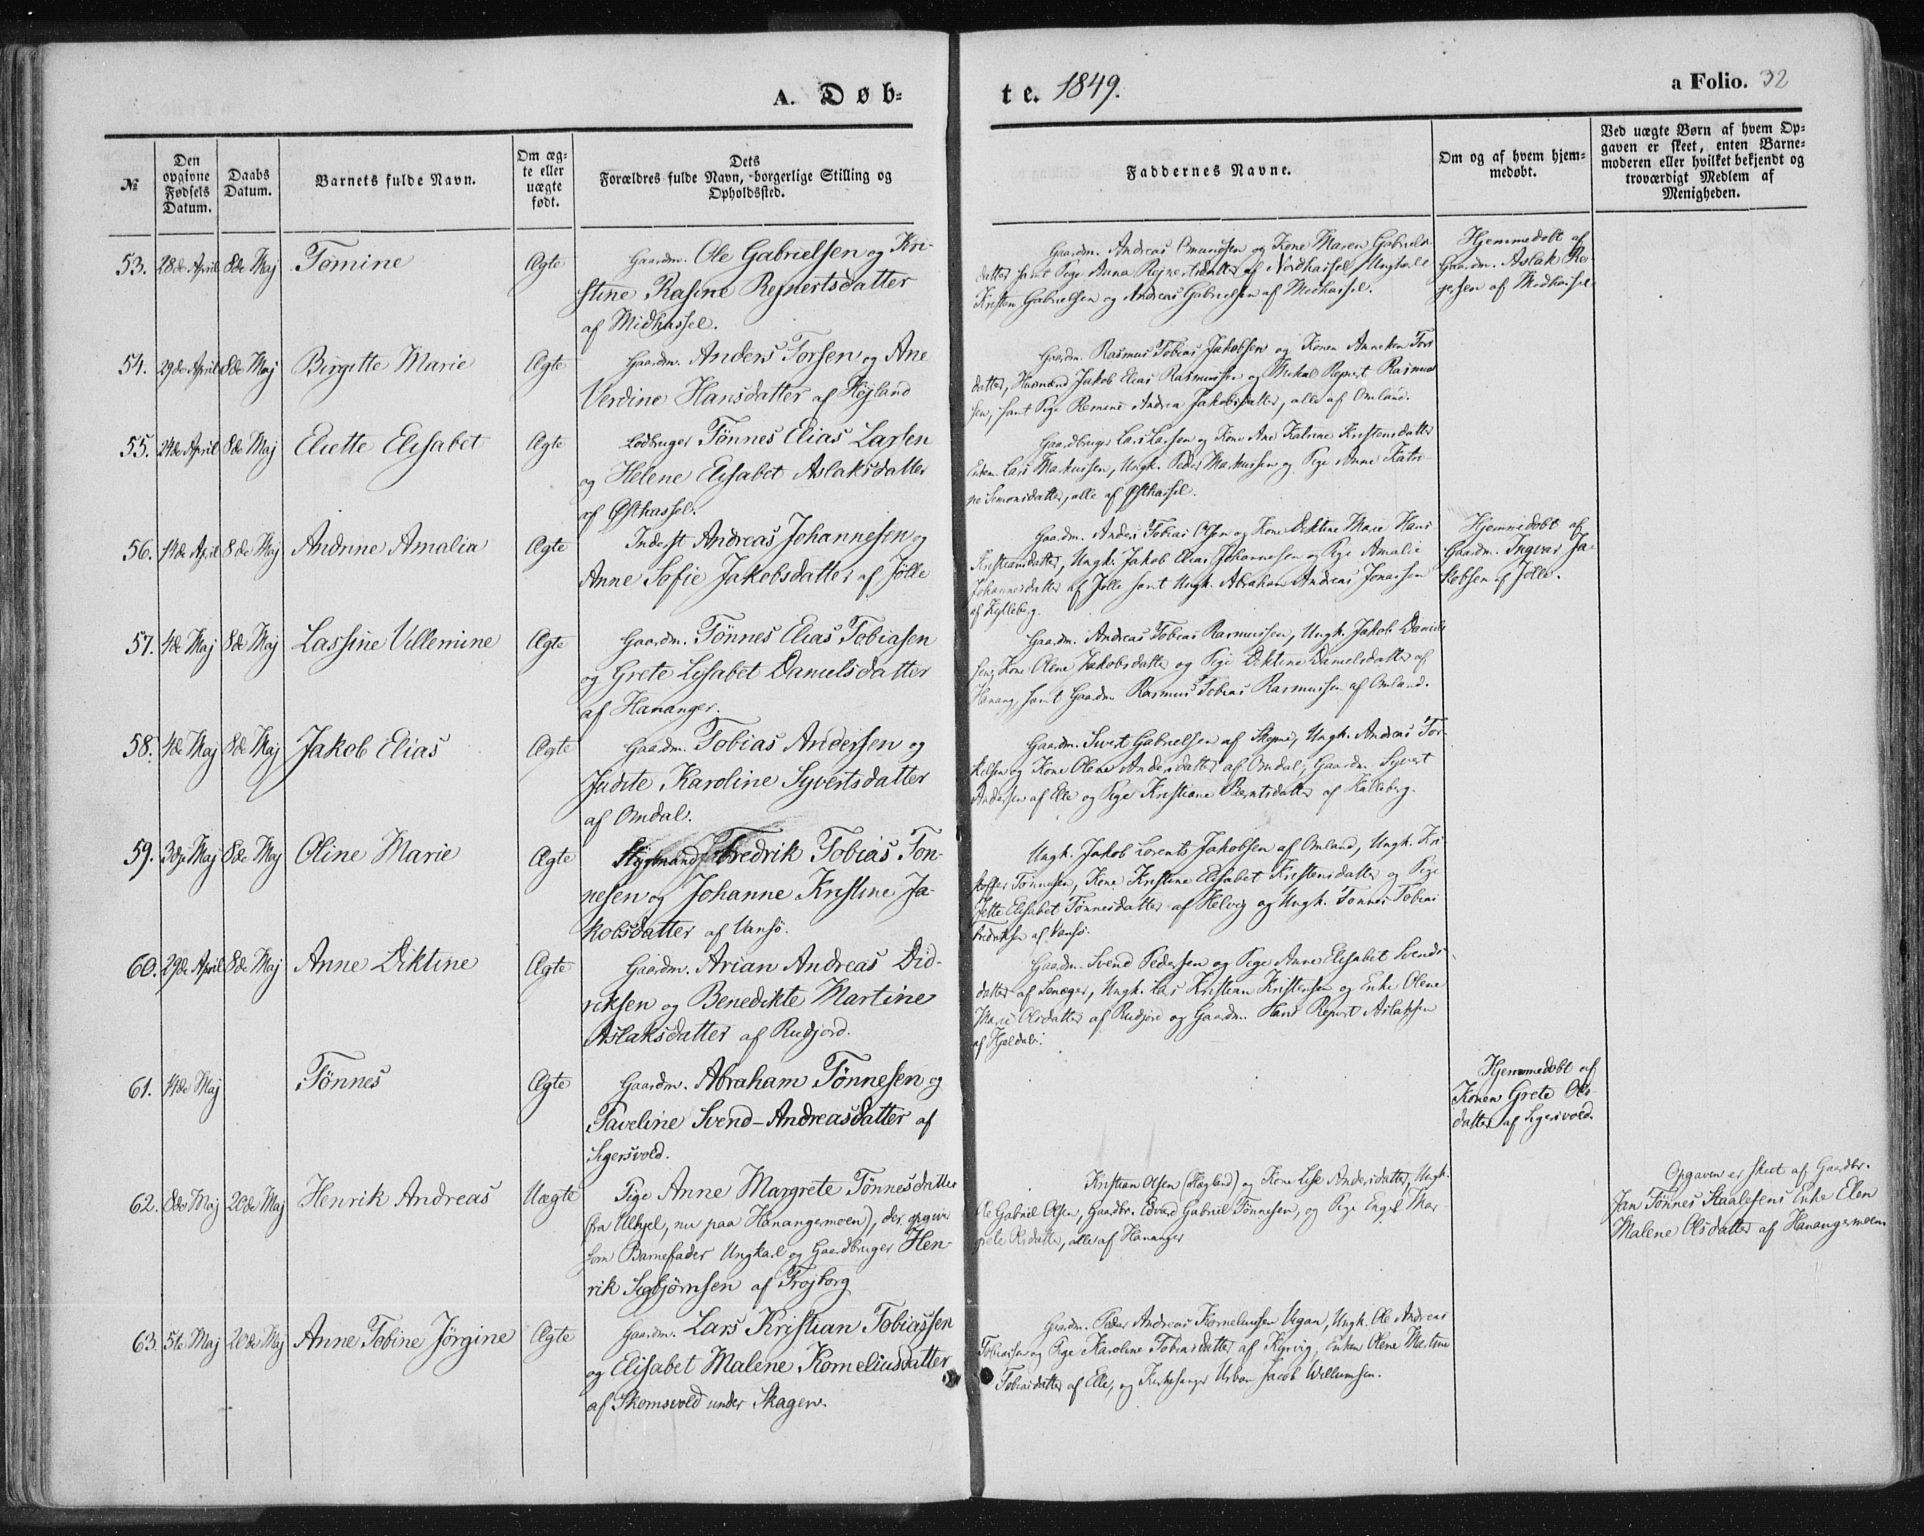 A. Døb-
te. 1849.
a Folio. 32
№
Den opgivne Fødsels Datum.
Daabs Datum.
Barnets fulde Navn.
Om ægte eller uægte født.
Dets
Forældres fulde Navn, borgerlige Stilling og
Opholdssted.
Faddernes Navne.
Om og af hvem hjem-
medøbt.
Ved uægte Børn af hvem Op-
gaven er skeet, enten Barne-
moderen eller hvilket bekjendt og
troværdigt Medlem af
Menigheden.
53. 28de April 8de Maj Tomine Ægte Gaardm. Ole Gabrielsen og Kri-
stine Rasine Rejnertsdatter
af Midhassel.
Gaardm. Andreas Omundsen og Kone Maren Gabriels
datter samt Pige Anna Rejnertsdatter af Nordhassel, Ungkarle
Kristen Gabrielsen og Andreas Gabrielsen af Midhassel.
Hjemmedøbt af
Gaardm. Aslak Re-
jersen af Midhassel
54. 29de April 8de Maj Birgitte Marie Ægte Gaardm. Anders Torsen og Ane
Verdine Hansdatter af Hejland
Gaardm. Rasmus Tobias Jakobsen og Konen Anneken Tors
datter, Husmænd Jakob Elias Rasmussen og Mikal Rejnert Rasmus
sen, samt Pige Remine Andrea Jakobsdatter, alle af Omland.
55. 24de April 8de Maj Eliette Elisabet Ægte Lodbruger Tønnes Elias Larsen
og Helene Elisabet Aslaksdatter
af Østhassel.
Gaardbruger Lars Larsen og Kone Ane Katrine Kristensdatter
Enkem. Lars Markussen, Ungk. Peder Markussen og Pige Anne Katri-
ne Simonsdatter, alle af Østhassel.
56. 14de April 8de Maj Andrine Amalia Ægte Inderst Andreas Johannesen og
Anne Sofie Jakobsdatter af Jølle
Gaardm. Anders Tobias Olsen og Kone Diktine Marie Hans
Kristiansdatter, Ungk. Jakob Elias Johannesen og Pige Amalie
Johannesdatter af Jølle samt Ungk. Abraham Andreas Jonassen
af Kylleberg.
Hjemmedøbt af
Gaardm. Ingvar Ja-
kobsen af Jølle.
57. 4de Maj 8de Maj Lassine Villemine Ægte Gaardm. Tønnes Elias Tobiasen
og Grete Lisabet Danielsdatter
af Hananger.
Gaardm. Andreas Tobias Rasmussen, Ungk. Jakob Daniel
sen, Kone Olene Jakobsdatter og Pige Diktine Danielsdatter af
Hanang, samt Gaardm. Rasmus Tobias Rasmussen af Omland.
58. 4de Maj 8de Maj Jakob Elias Ægte Gaardm. Tobias Andersen og
Judite Karoline Syvertsdatter
af Omdal.
Gaardm. Sivert Gabrielsen af Skeime, Ungk. Andreas Tor-
kelsen og Kone Olene Andersdatter af Omdal, Gaardm. Syvert
Andersen af Elle og Pige Kristiane Berntsdatter af Kalleberg.
59. 3dje Maj 8de Maj Oline Marie Ægte Fredrik Tobias Tøn-
nesen og Johanne Kristine Ja-
kobsdatter af Vansø.
Ungk. Jakob Lorents Jakobsen af Omland, Ungk. Kri
stoffer Tønnesen, Kone Kristine Elisabet Kristensdatter og Pige
Jette Elisabet Tønnesdatter af Helvig og Ungk. Tønnes Tobias
Fredriksen af Vansø.
60. 29de April 8de Maj Anne Diktine Ægte Gaardm. Arian Andreas Did-
riksen og Benedikte Martine
Aslaksdatter af Rudjord.
Gaardm. Svend Pedersen og Pige Anne Elisabet Svends
datter af Lenæger, Ungk. Lars Kristian Kristensen og Enke Olene
Marie Olsdatter af Rudjord og Gaardm. Hans Rejnert Aslaksen
af Hjeldal.
61. 14de Maj Tønnes Ægte Gaardm. Abraham Tønnesen og
Paveline Svend-Andreasdatter af
Sigersvold.
Hjemmedøbt af
Konen Grete Ols-
datter af Sigersvold.
62. 8de Maj 20de Maj Henrik Andreas Uægte Pige Anne Margrete Tønnesdatter
(fra Ulhjel, nu paa Hanangermoen), der opgiver
som Barnefader Ungkarl og Gaardbruger Hen-
rik Sigbjørnsen af Frøjborg
Kristian Olsen (Hægland) og Kone Lise Andersdatter, Ungk.
Ole Gabriel Olsen, Gaardbr. Edvard Gabriel Tønnesen, og Pige Engel Mar-
grete Olsdatter, alle af Hananger
Opgaven er skeet af Gaardbr.
Jan Tønnes Staalesens Enke Elen
Malene Olsdatter af Hanangermoen
63. 5te Maj 20de Maj Anne Tobine Jørgine Ægte Gaardm. Lars Kristian Tobiassen
og Elisabet Malene Korneliusdatter
af Skomsvold under Skagen.
Gaardm. Peder Andreas Korneliussen Vigan, Ungk. Ole Andreas
Tobiassen og Pige Karoline Tobiasdatter af Kjørvig, Enken Olene Martine
Tobiasdatter af Elle, og Kirkesanger Urban Jacob Willumsen.